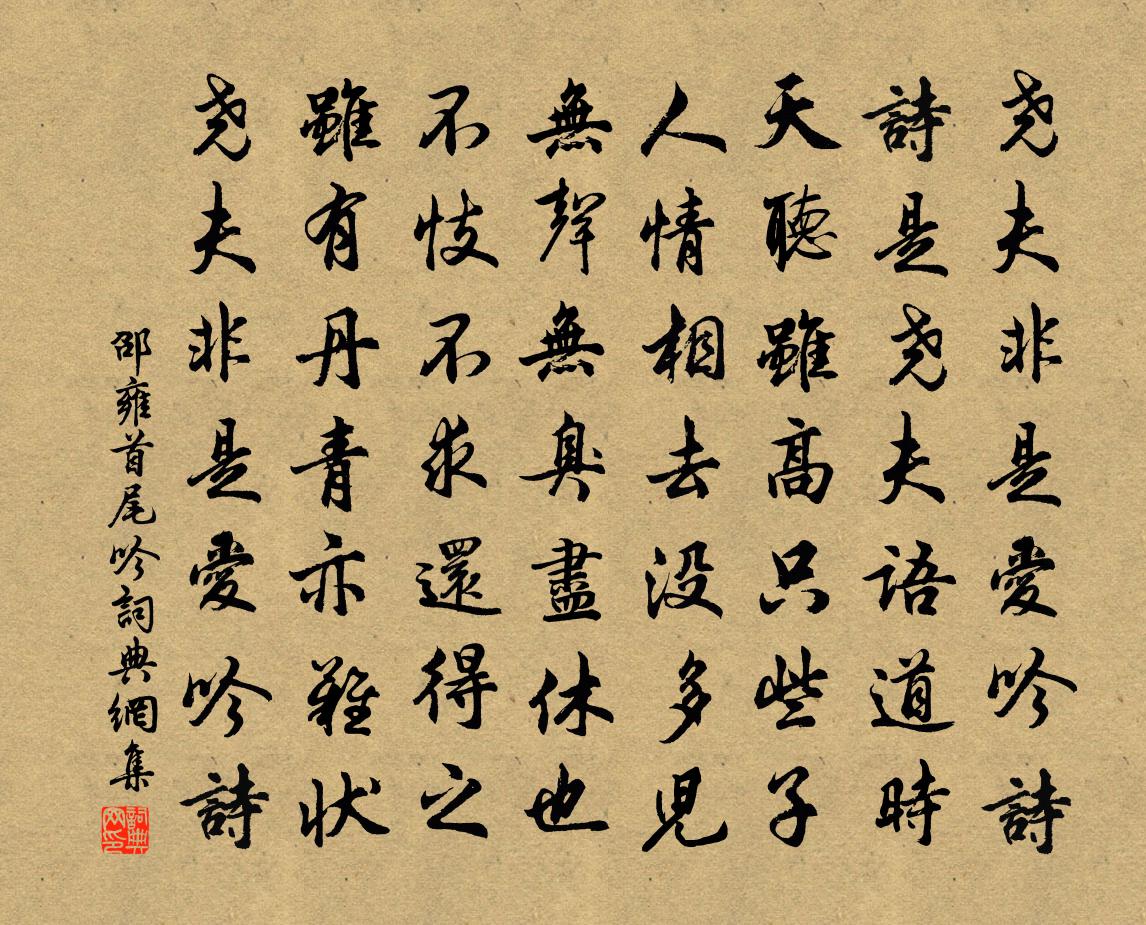 尧夫非是愛吟詩
詩是尧夫語道時
天聽雖高只些子
人情相去没多兒
無聲無臭盡休也
不忮不求還得之
雖有丹青亦難狀
尧夫非是愛吟詩
邵雍首尾吟詞典網集
詞典網印